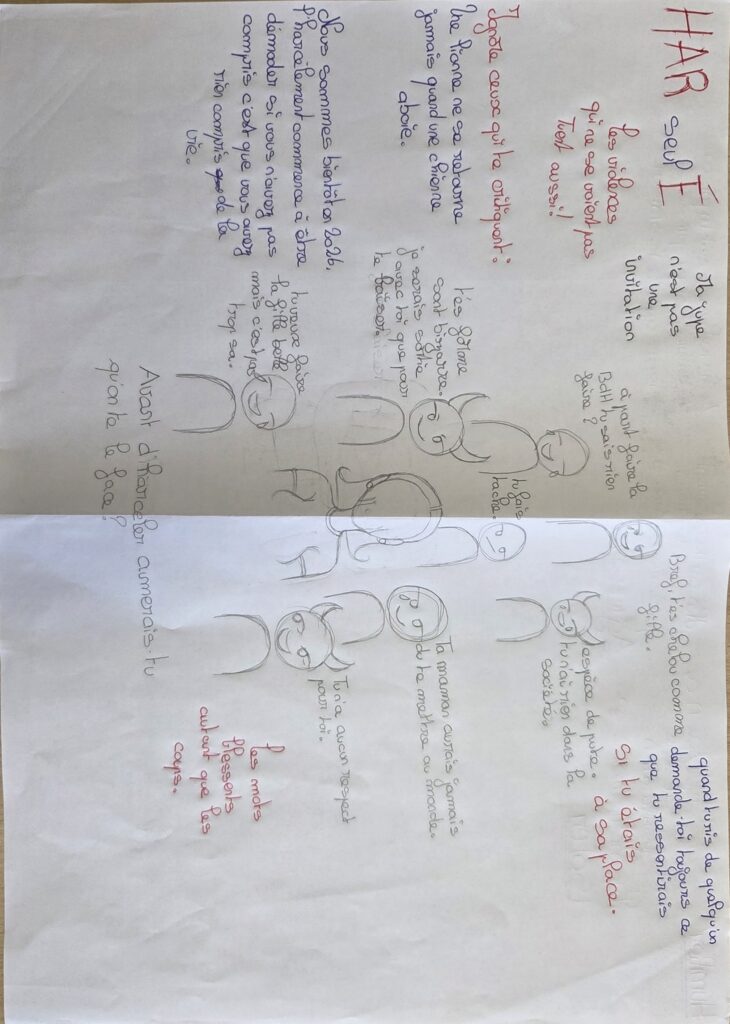 HAR seul É
Les violences
qui ne se voient pas
Tuent aussi!
Ma jupe
n'est pas
une
invitation
Ignore ceux qui te critiquent :
Une lionne ne se retourne
jamais quand une chienne
aboie.
Nous sommes bientôt en 2026,
l'harcèlement commence à être
démoder si vous n'avez pas
compris c'est que vous avez
rien compris de la
vie.
à part faire la
BDH tu sais rien
faire ?
t'es forme
sont bizarre.
je serais sortie
avec toi que pour
te baiser.
tu veux faire
la fille belle
mais c'est pas
trop sa.
tu fais
tache.
Bref, t'es chelou comme
fille.
espèce de pute.
tu n'ai rien dans la
société.
Ta maman aurais jamais
du te mettre au monde.
Tu n'a aucun respect
pour toi.
quand tu ris de quelqu'un
demande-toi toujours ce
que tu ressentirais
Si tu étais à sa place.
Les mots
blessents
autant que les
coups.
Avant d'harceler aimerais-tu
qu'on te le face ?